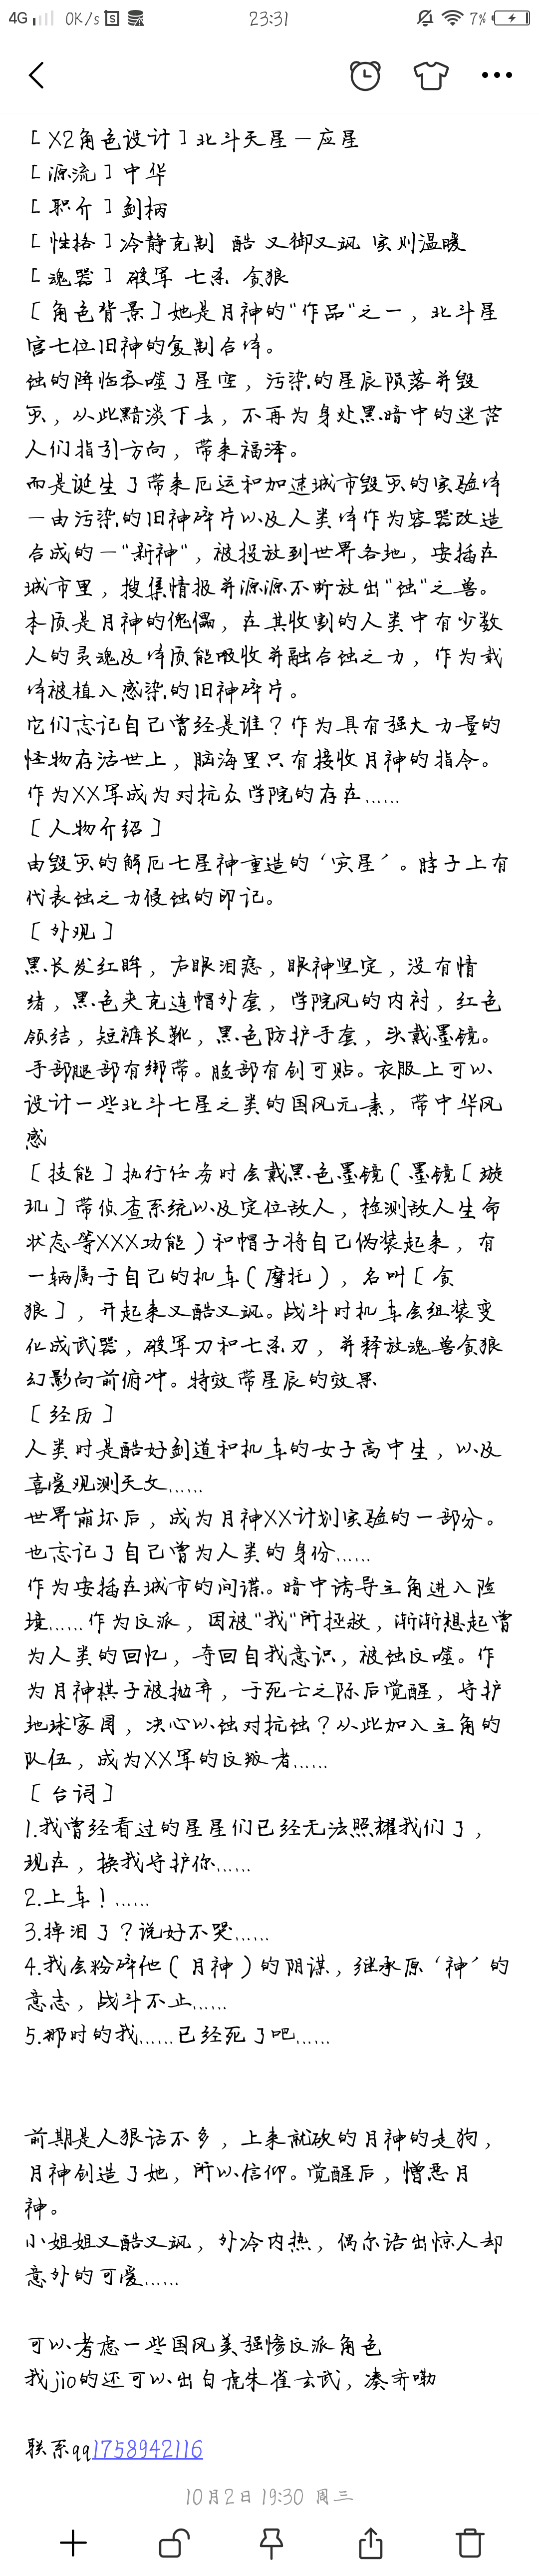 4G 0K/s 23:31 7%
[ X2角色设计 ] 北斗天星一应星
[ 源流 ] 中华
[ 职介 ] 剑柄
[ 性格 ] 冷静克制 酷 又御又飒 实则温暖
[ 魂器 ] 破军 七杀 贪狼
[ 角色背景 ] 她是月神的"作品"之一，北斗星
宫七位旧神的复制合体。
蚀的降临吞噬了星空，污染的星辰陨落并毁
灭，从此黯淡下去，不再为身处黑暗中的迷茫
人们指引方向，带来福泽。
而是诞生了带来厄运和加速城市毁灭的实验体
一由污染的旧神碎片以及人类体作为容器改造
合成的一"新神"，被投放到世界各地，安插在
城市里，搜集情报并源源不断放出"蚀"之兽。
本质是月神的傀儡，在其收割的人类中有少数
人的灵魂及体质能吸收并融合蚀之力，作为载
体被植入感染的旧神碎片。
它们忘记自己曾经是谁？作为具有强大力量的
怪物存活世上，脑海里只有接收月神的指令。
作为XX军成为对抗众学院的存在……
[ 人物介绍 ]
由毁灭的解厄七星神重造的‘灾星’。脖子上有
代表蚀之力侵蚀的印记。
[ 外观 ]
黑长发红眸，右眼泪痣，眼神坚定，没有情
绪，黑色夹克连帽外套，学院风的内衬，红色
领结，短裤长靴，黑色防护手套，头戴墨镜。
手部腿部有绑带。脸部有创可贴。衣服上可以
设计一些北斗七星之类的国风元素，带中华风
感
[ 技能 ] 执行任务时会戴黑色墨镜 ( 墨镜 [ 璇
玑 ] 带侦查系统以及定位敌人，检测敌人生命
状态等XXX功能 ) 和帽子将自己伪装起来，有
一辆属于自己的机车 ( 摩托 )，名叫 [ 贪
狼 ]，开起来又酷又飒。战斗时机车会组装变
化成武器，破军刀和七杀刃，并释放魂兽贪狼
幻影向前俯冲。特效带星辰的效果
[ 经历 ]
人类时是酷好剑道和机车的女子高中生，以及
喜爱观测天文……
世界崩坏后，成为月神XX计划实验的一部分。
也忘记了自己曾为人类的身份……
作为安插在城市的间谍。暗中诱导主角进入险
境……作为反派，因被"我"所拯救，渐渐想起曾
为人类的回忆，夺回自我意识，被蚀反噬。作
为月神棋子被抛弃，于死亡之际后觉醒，守护
地球家园，决心以蚀对抗蚀？从此加入主角的
队伍，成为XX军的反叛者……
[ 台词 ]
1.我曾经看过的星星们已经无法照耀我们了，
现在，换我守护你……
2.上车！……
3.掉泪了？说好不哭……
4.我会粉碎他 ( 月神 ) 的阴谋，继承原‘神’的
意志，战斗不止……
5.那时的我……已经死了吧……
前期是人狠话不多，上来就砍的月神的走狗，
月神创造了她，所以信仰。觉醒后，憎恶月
神。
小姐姐又酷又飒，外冷内热，偶尔语出惊人却
意外的可爱……
可以考虑一些国风美强惨反派角色
我jio的还可以出白虎朱雀玄武，凑齐嘞
联系qq1758942116
10月2日 19:30 周三